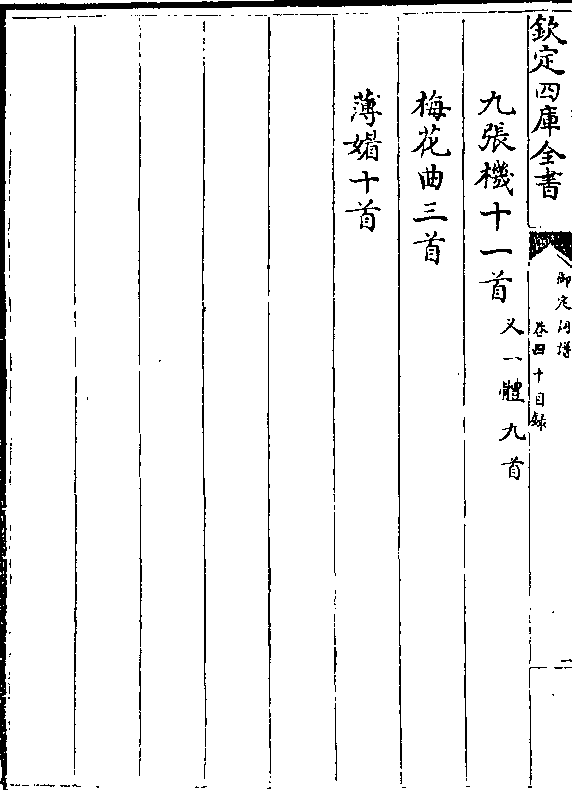 欽定四庫全書
御定詞譜
卷四十目錄
二
九張機十一首 又一體九首
梅花曲三首
薄媚十首